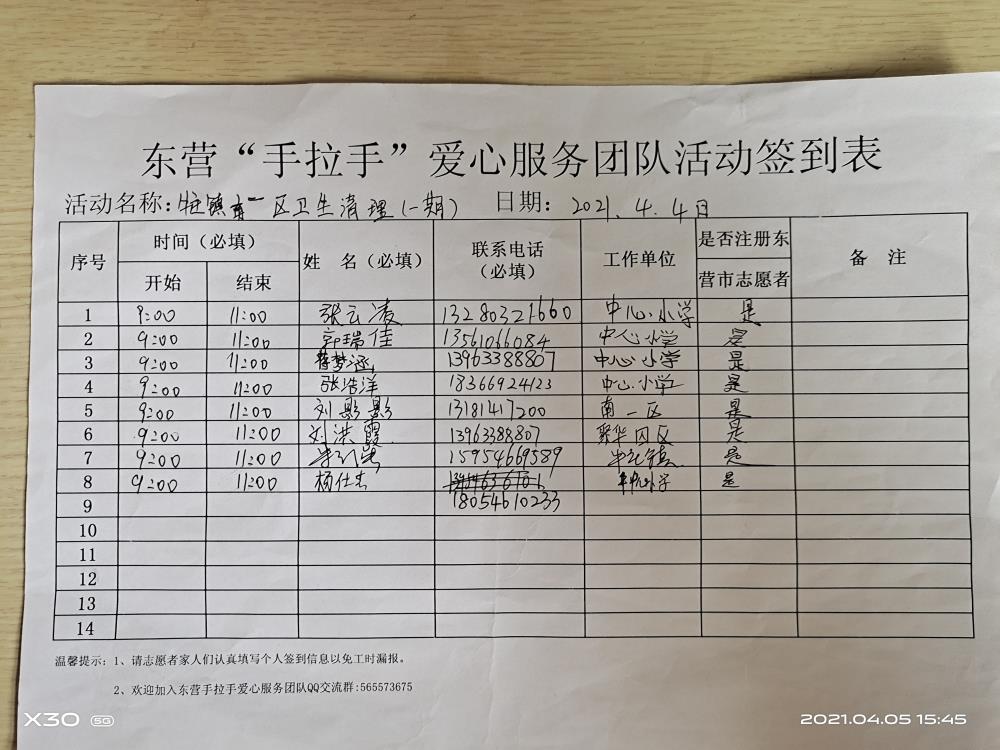 东营“手拉手”爱心服务团队活动签到表
活动名称: 镇南一区卫生清理(一期) 日期: 2021.4.4日
序号 时间(必填) 姓 名(必填) 联系电话(必填) 工作单位 是否注册东营市志愿者 备 注
开始 结束
1 9:00 11:00 张云凌 13280321660 中心小学 是
2 9:00 11:00 郭瑞佳 13561066084 中心小学 是
3 9:00 11:00 梦涵 13963388807 中心小学 是
4 9:00 11:00 张浩洋 18366924123 中心小学 是
5 9:00 11:00 刘影影 13181417200 南一区 是
6 9:00 11:00 刘洪霞 13963388807 区 是
7 9:00 11:00 15954669589 镇 是
8 9:00 11:00 杨仕杰 中心小学 是
9 18054610233
10
11
12
13
14
温馨提示: 1、请志愿者家人们认真填写个人签到信息以免工时漏报。
2、欢迎加入东营手拉手爱心服务团队QQ交流群:565573675
X30 5G
2021.04.05 15:45